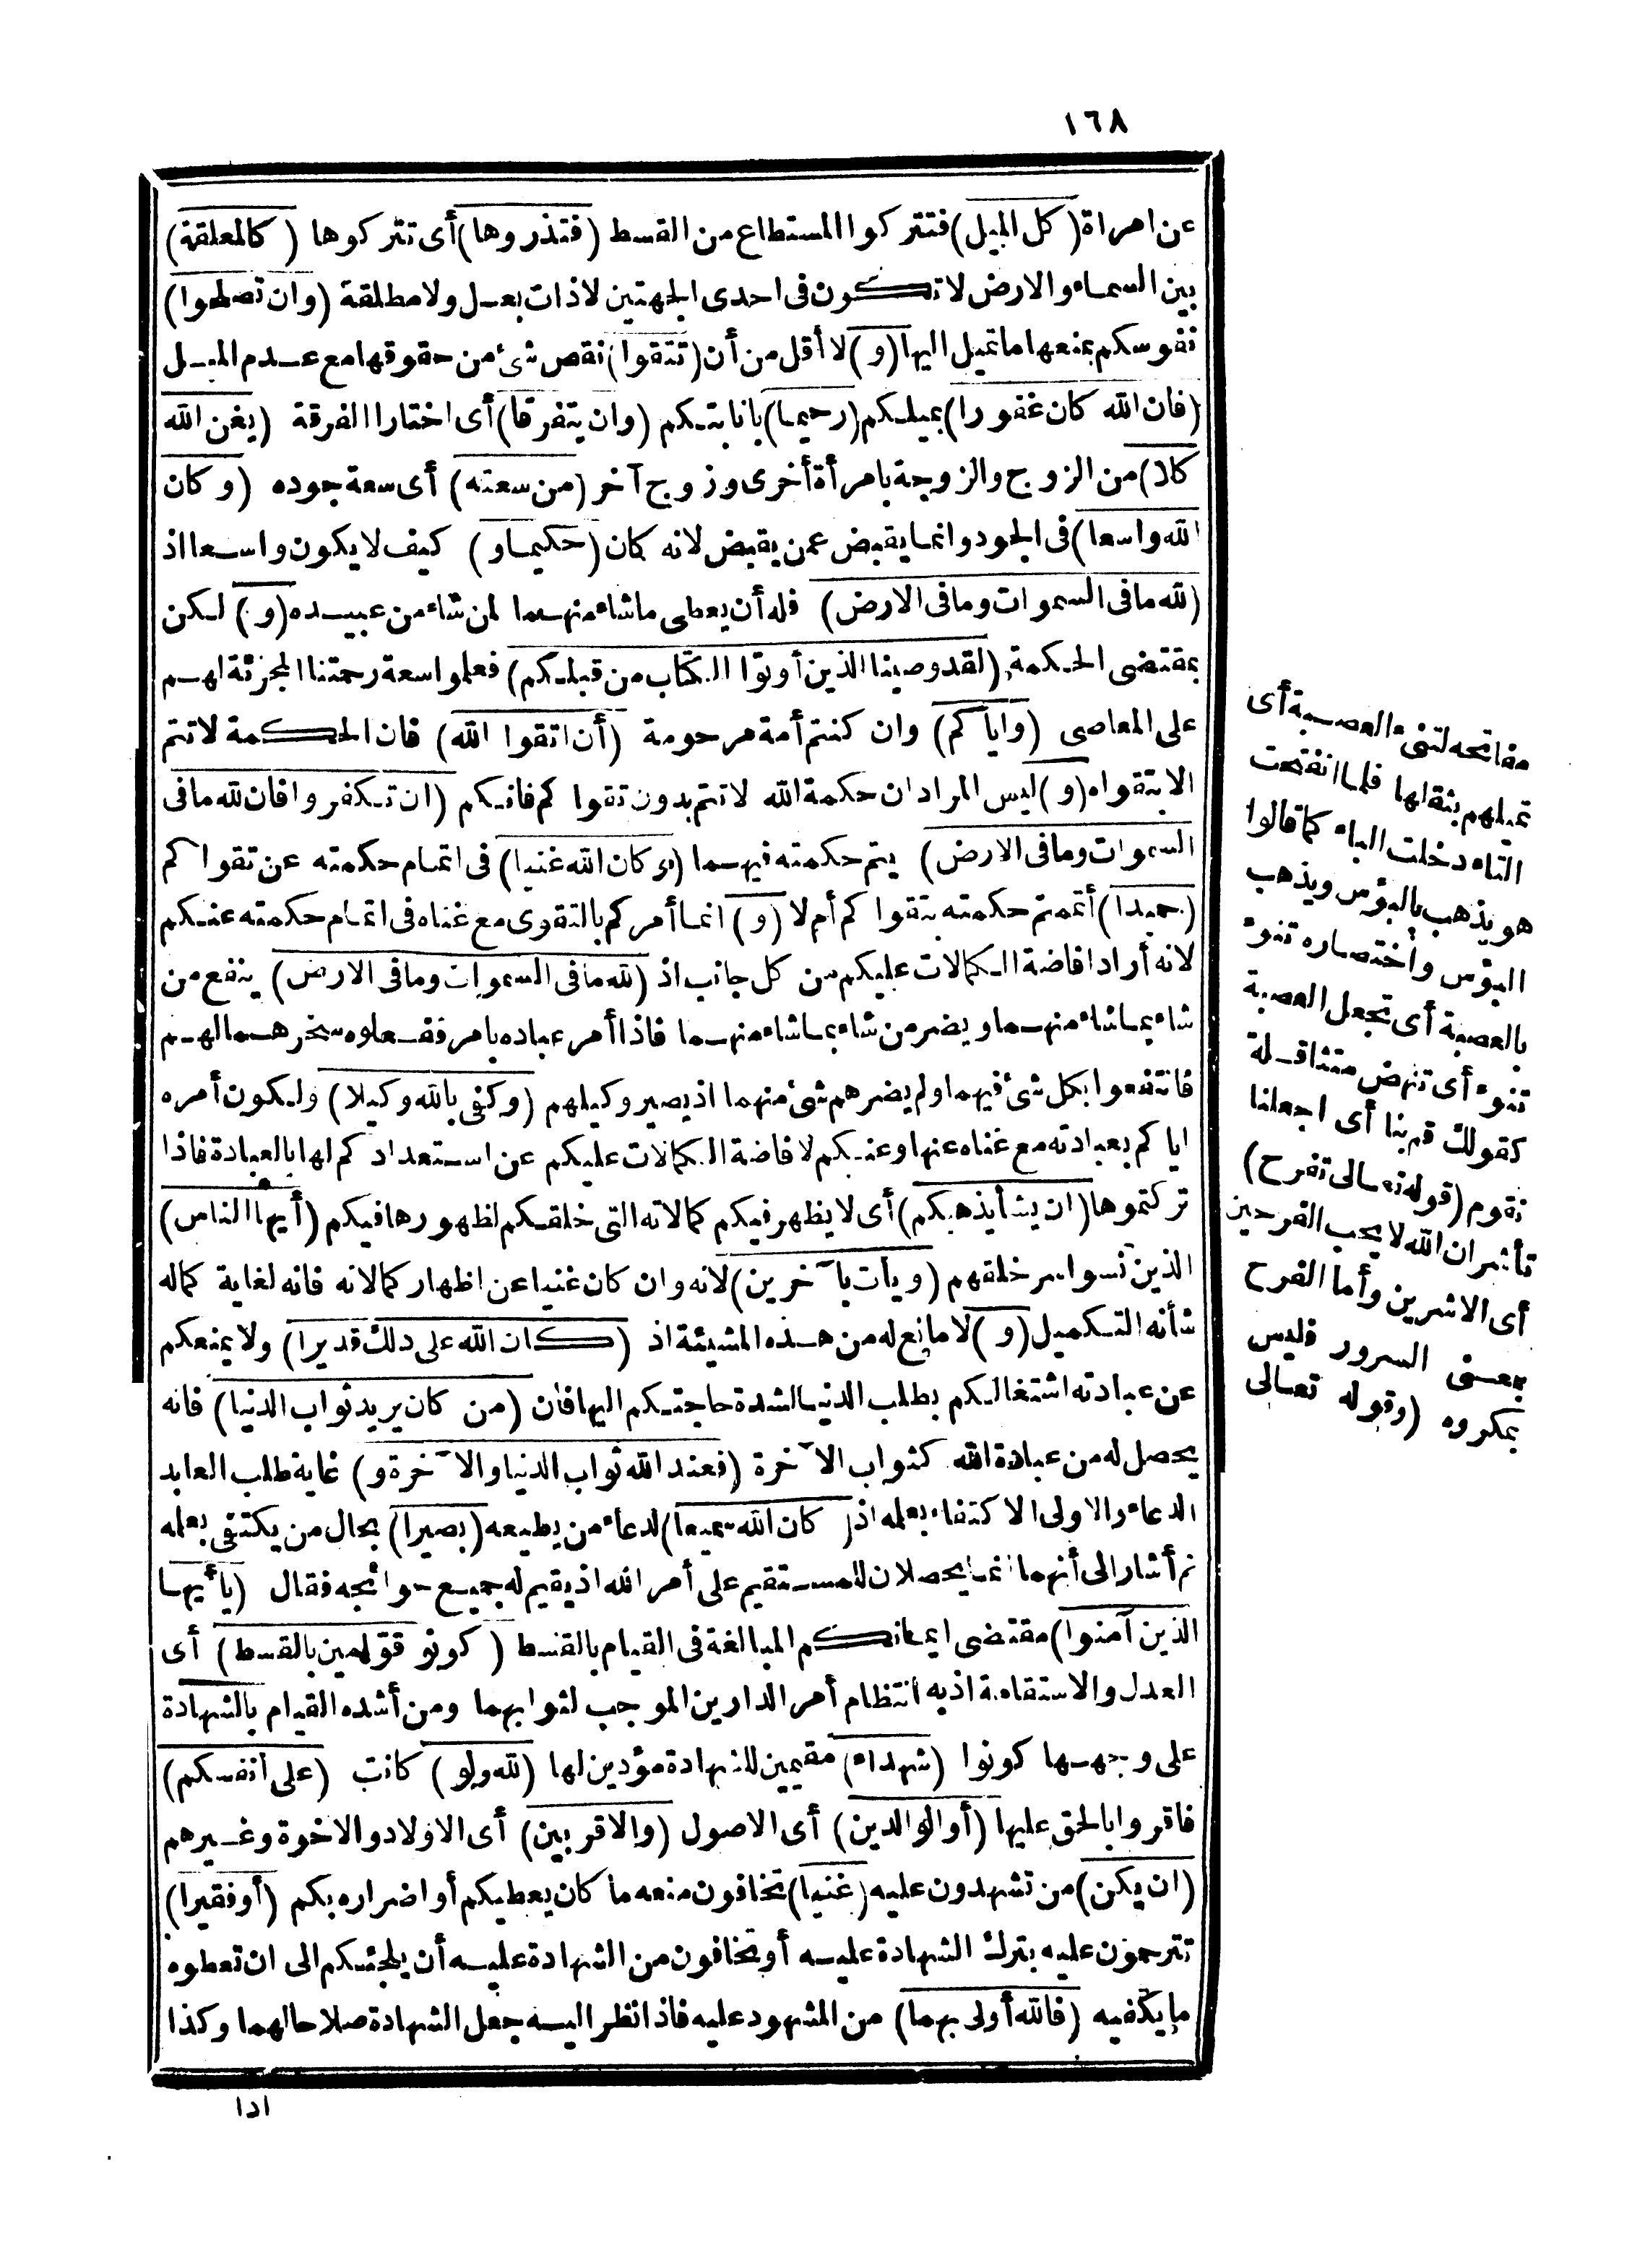 ١٦٨
عن امرأة (كل الميل) فتتركوا المستطاع من القسط (فتذروها) أى تتركوها (كالمعلقة)
بين السماء والارض لا تكون فى احدى الجهتين لا ذات بعل ولا مطلقة (وان تصلحوا)
نفوسكم بمنعها ما تميل اليها (و) لا أقل من أن (تتقوا) نقص شئ من حقوقها مع عدم الميل
(فان الله كان غفورا) بميلكم (رحيما) بانابتكم (وان يتفرقا) أى اختارا الفرقة (يغن الله
كلا) من الزوج والزوجة بامرأة أخرى وزوج آخر (من سعته) أى سعة جوده (وكان
الله واسعا) فى الجود وانما يقبض عمن يقبض لانه كان (حكيما و) كيف لا يكون واسعا اذ
(لله ما فى السموات وما فى الارض) فله أن يعطى ما شاء منهما لمن شاء من عبيده (و) لكن
بمقتضى الحكمة (لقد وصينا الذين أوتوا الكتاب من قبلكم) فعلموا سعة رحمتنا المجزئة لهم
على المعاصى (واياكم) وان كنتم أمة مرحومة (أن اتقوا الله) فان الحكمة لا تتم
الا بتقواه (و) ليس المراد ان حكمة الله لا تتم بدون تقواكم فانكم (ان تكفروا فان لله ما فى
السموات وما فى الارض) يتم حكمته فيهما (وكان الله غنيا) فى اتمام حكمته عن تقواكم
(حميدا) أتمتم حكمته بتقواكم أم لا (و) انما أمركم بالتقوى مع غناه فى اتمام حكمته عنكم
لانه أراد افاضة الكمالات عليكم من كل جانب اذ (لله ما فى السموات وما فى الارض) ينفع من
شاء بما شاء منهما ويضر من شاء بما شاء منهما فاذا أمر عباده بامر ففعلوه سخرهما لهم
فانتفعوا بكل شئ فيهما ولم يضرهم شئ منهما اذ يصير وكيلهم (وكفى بالله وكيلا) ولكون أمره
اياكم بعبادته مع غناه عنها وعنكم لافاضة الكمالات عليكم عن استعدادكم لها بالعبادة فاذا
تركتموها (ان يشأ يذهبكم) أى لا يظهر فيكم كمالاته التى خلقكم لظهورها فيكم (أيها الناس)
الذين نسوا سر خلقهم (ويأت بآخرين) لانه وان كان غنيا عن اظهار كمالاته فانه لغاية كماله
شأنه التكميل (و) لا مانع له من هذه المشيئة اذ (كان الله على ذلك قديرا) ولا يمنعكم
عن عبادته اشتغالكم بطلب الدنيا لشدة حاجتكم اليها فان (من كان يريد ثواب الدنيا) فانه
يحصل له من عبادة الله كثواب الآخرة (فعند الله ثواب الدنيا والآخرة و) غاية طلب العابد
الدعاء والاولى الاكتفاء بعلمه اذ (كان الله سميعا) لدعاء من يطيعه (بصيرا) بحال من يكتفى بعلمه
ثم أشار الى أنهما انما يحصلان للمستقيم على أمر الله اذ يقيم له جميع حوائجه فقال (يا أيها
الذين آمنوا) مقتضى ايمانكم المبالغة فى القيام بالقسط (كونو قوّامين بالقسط) أى
العدل والاستقامة اذ به انتظام أمر الدارين الموجب لثوابهما ومن أشده القيام بالشهادة
على وجهها كونوا (شهداء) مقيمين للشهادة مؤدين لها (لله ولو) كانت (على أنفسكم)
فاقروا بالحق عليها (أو الوالدين) أى الاصول (والاقربين) أى الاولاد والاخوة وغيرهم
(ان يكن) من تشهدون عليه (غنيا) تخافون منعه ما كان يعطيكم أو اضراره بكم (أو فقيرا)
تترحمون عليه بترك الشهادة عليه أو تخافون من الشهادة عليه أن يلجئكم الى ان تعطوه
ما يكفيه (فالله أولى بهما) من المشهود عليه فاذا نظر اليه جعل الشهادة صلاحا لهما وكذا
اذا
مفاتحه لتنىء العصبة أى
تميلهم بثقلها فلما انفتحت
التاء دخلت الباء كما قالوا
هو يذهب بالبؤس ويذهب
البؤس واختصاره تنوء
بالعصبة أى تجعل العصبة
تنوء أى تنهض متثاقلة
كقولك قم بنا أى اجعلنا
نقوم (قوله تعالى تفرح)
تأشر ان الله لا يحب الفرحين
أى الاشرين وأما الفرح
بمعنى السرور فليس
بمكروه (وقوله تعالى